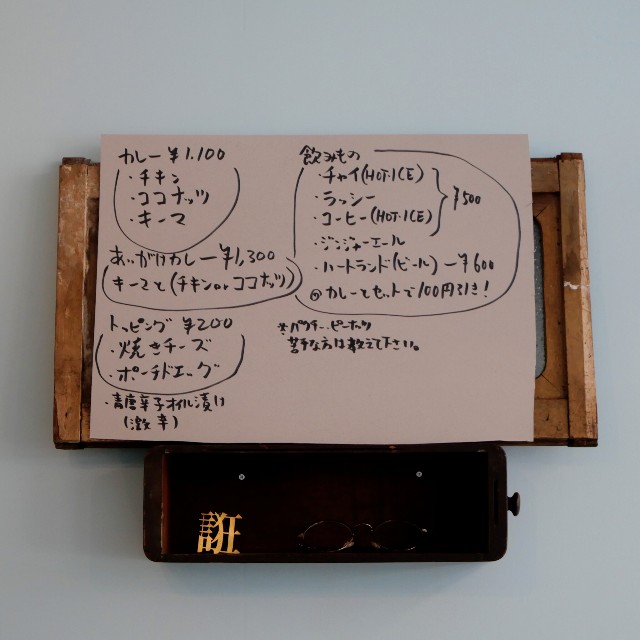 カレー ¥1,100
・チキン
・ココナッツ
・キーマ
あいがけカレー ¥1,300
キーマと(チキン or ココナッツ)
トッピング ¥200
・焼きチーズ
・ポーチドエッグ
・青唐辛子オイル漬け
(激辛)
飲みもの
・チャイ(HOT・ICE)
・ラッシー
・コーヒー(HOT・ICE)
¥500
・ジンジャーエール
・ハートランド(ビール) ー¥600
◎カレーとセットで100円引き!
※パクチー、ピーナッツ
苦手な方は教えて下さい。
誑